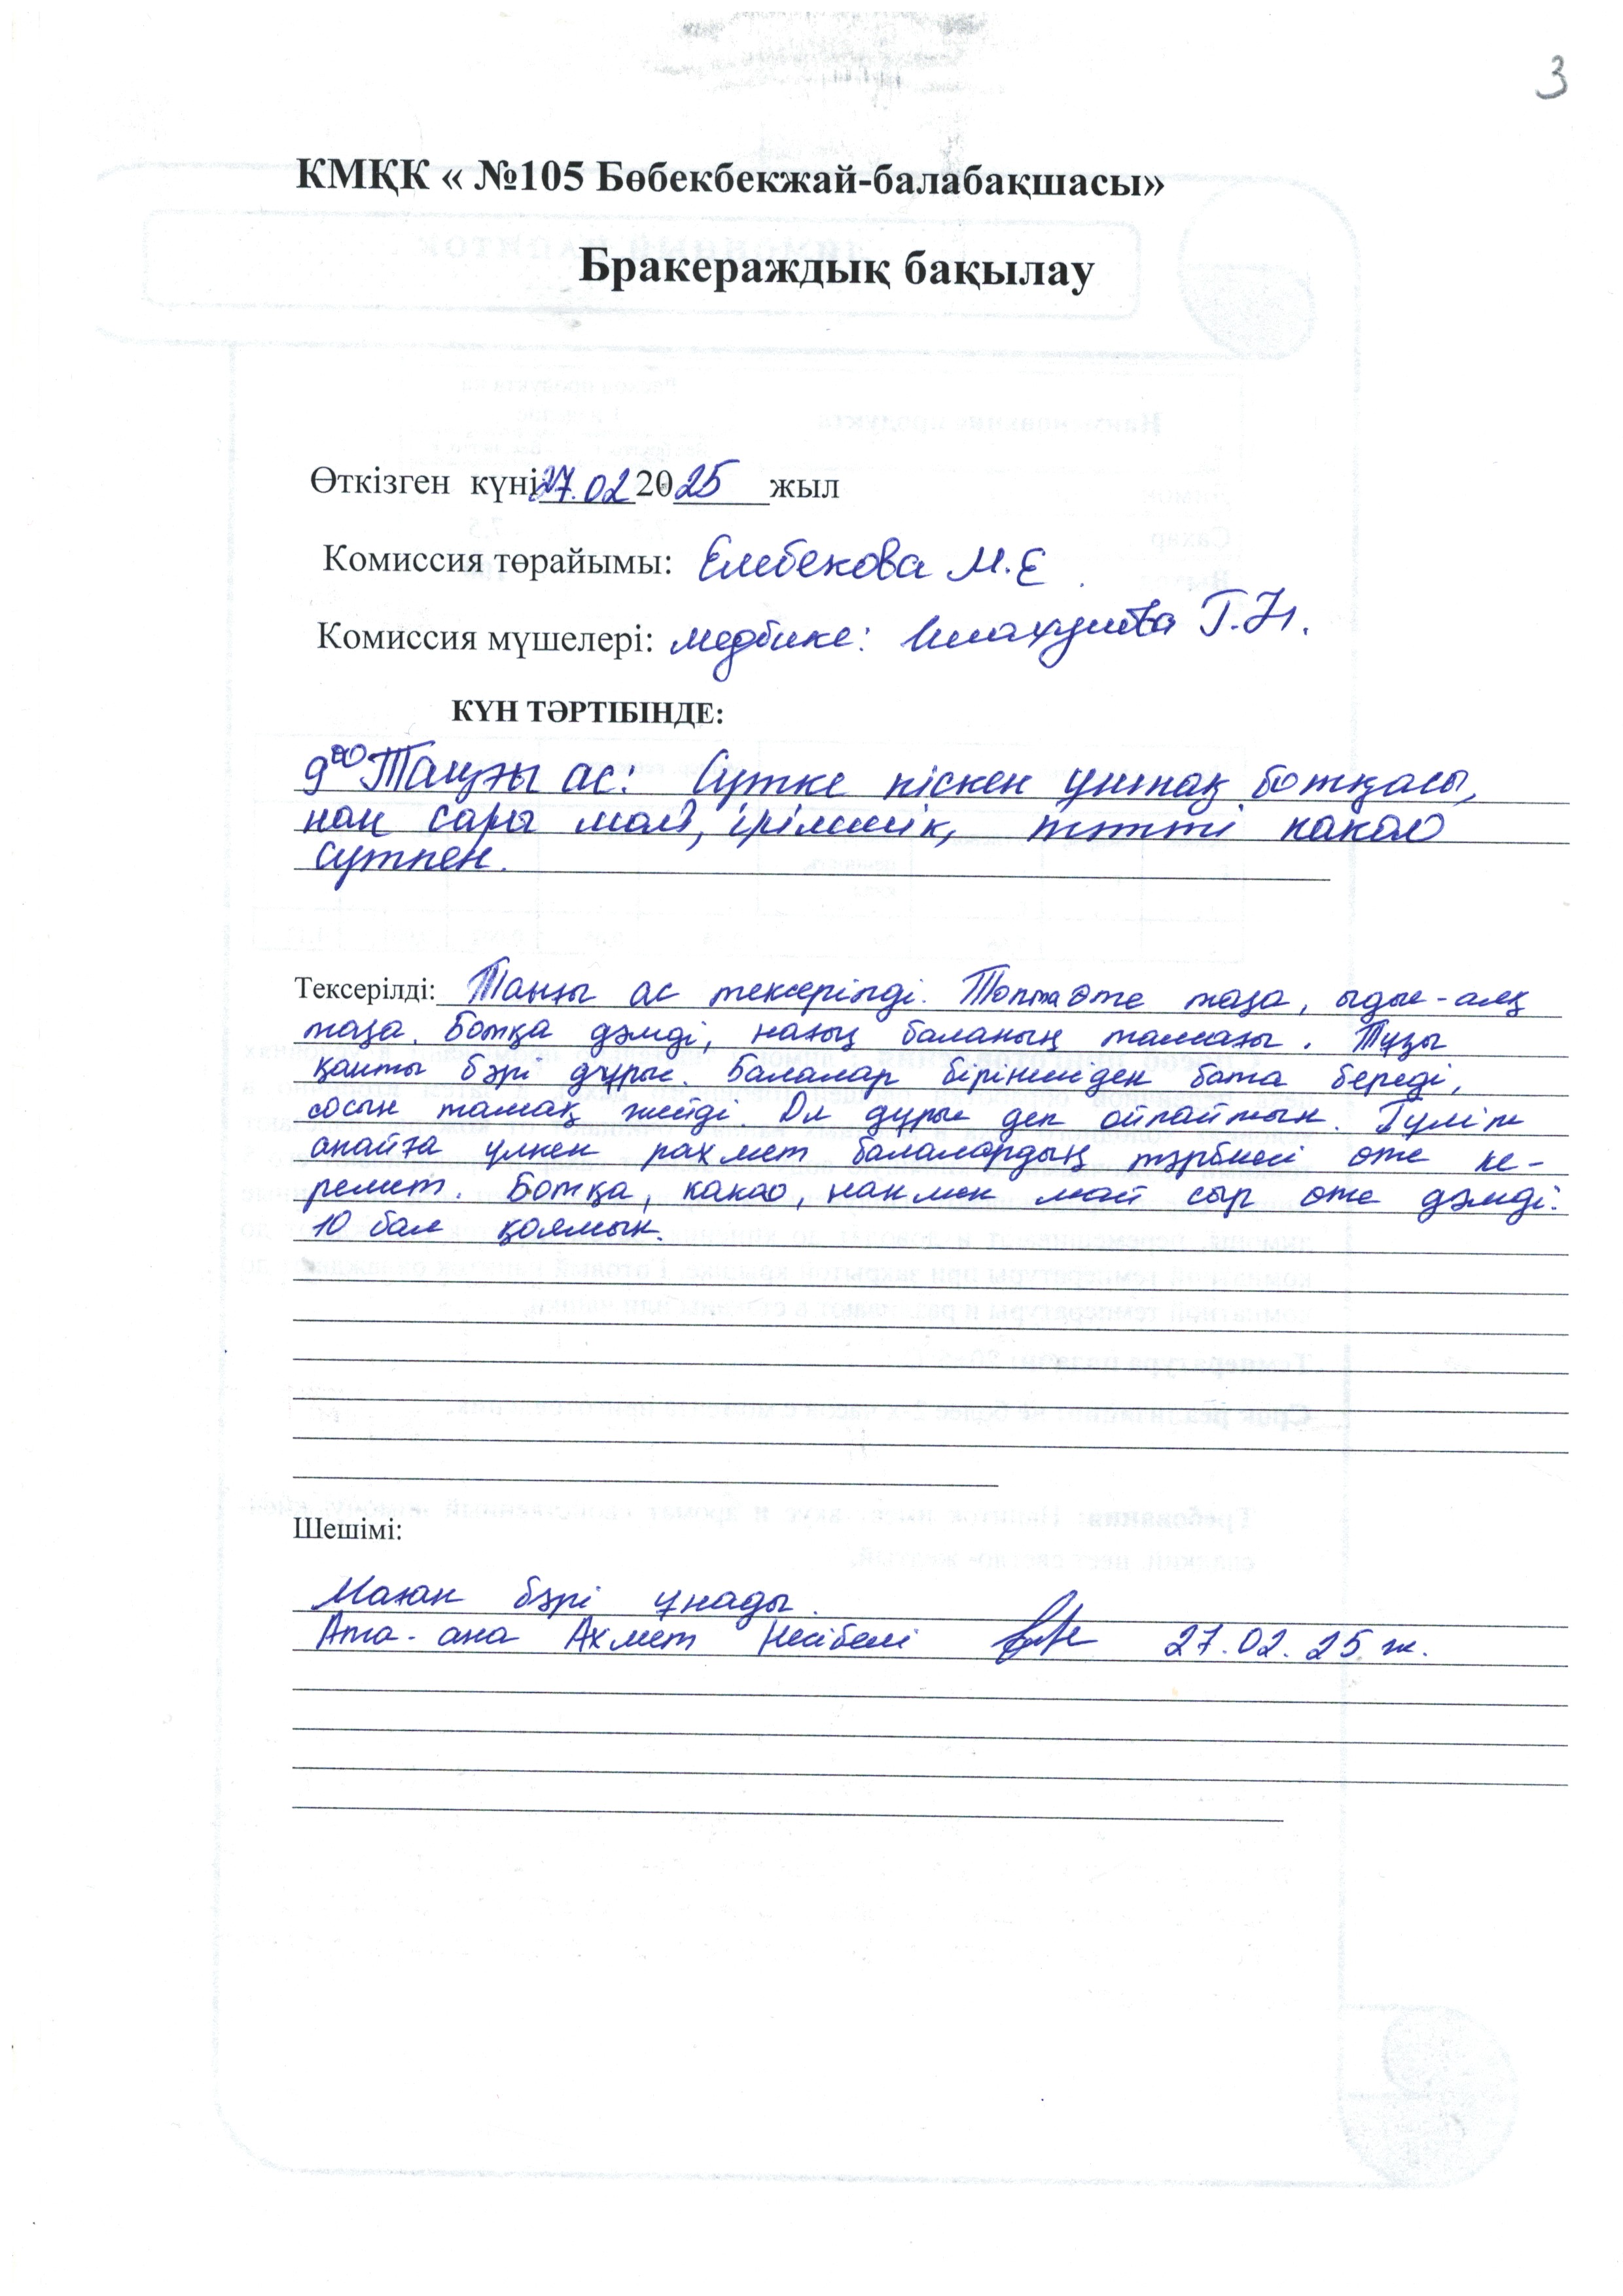 3
КМҚК « №105 Бөбекбекжай-балабақшасы»
Бракераждық бақылау
Өткізген күні 27.02 2025 жыл
Комиссия төрайымы: Елебекова М.Е.
Комиссия мүшелері: медбике: Г.Н.
КҮН ТӘРТІБІНДЕ:
9⁰⁰ Таңғы ас: Сүтке піскен ұнтақ ботқасы,
нан сары май, ірімшік, тәтті какао
сүтпен.
Тексерілді: Таңғы ас тексерілді. Топта өте таза, ыдыс-аяқ
таза. Ботқа дәмді, нағыз баланың тамағы. Тұзы
қанты бәрі дұрыс. Балалар біріншіден бата береді,
сосын тамақ жейді Ол дұрыс деп ойлаймын.
апайға үлкен рахмет балалардың тәрбиесі өте ке-
ремет. Ботқа, какао, нанмен май сыр өте дәмді.
10 бал қоямын.
Шешімі:
Маған бәрі ұнады.
Ата-ана Ахмет Несібелі 27.02.25 ж.